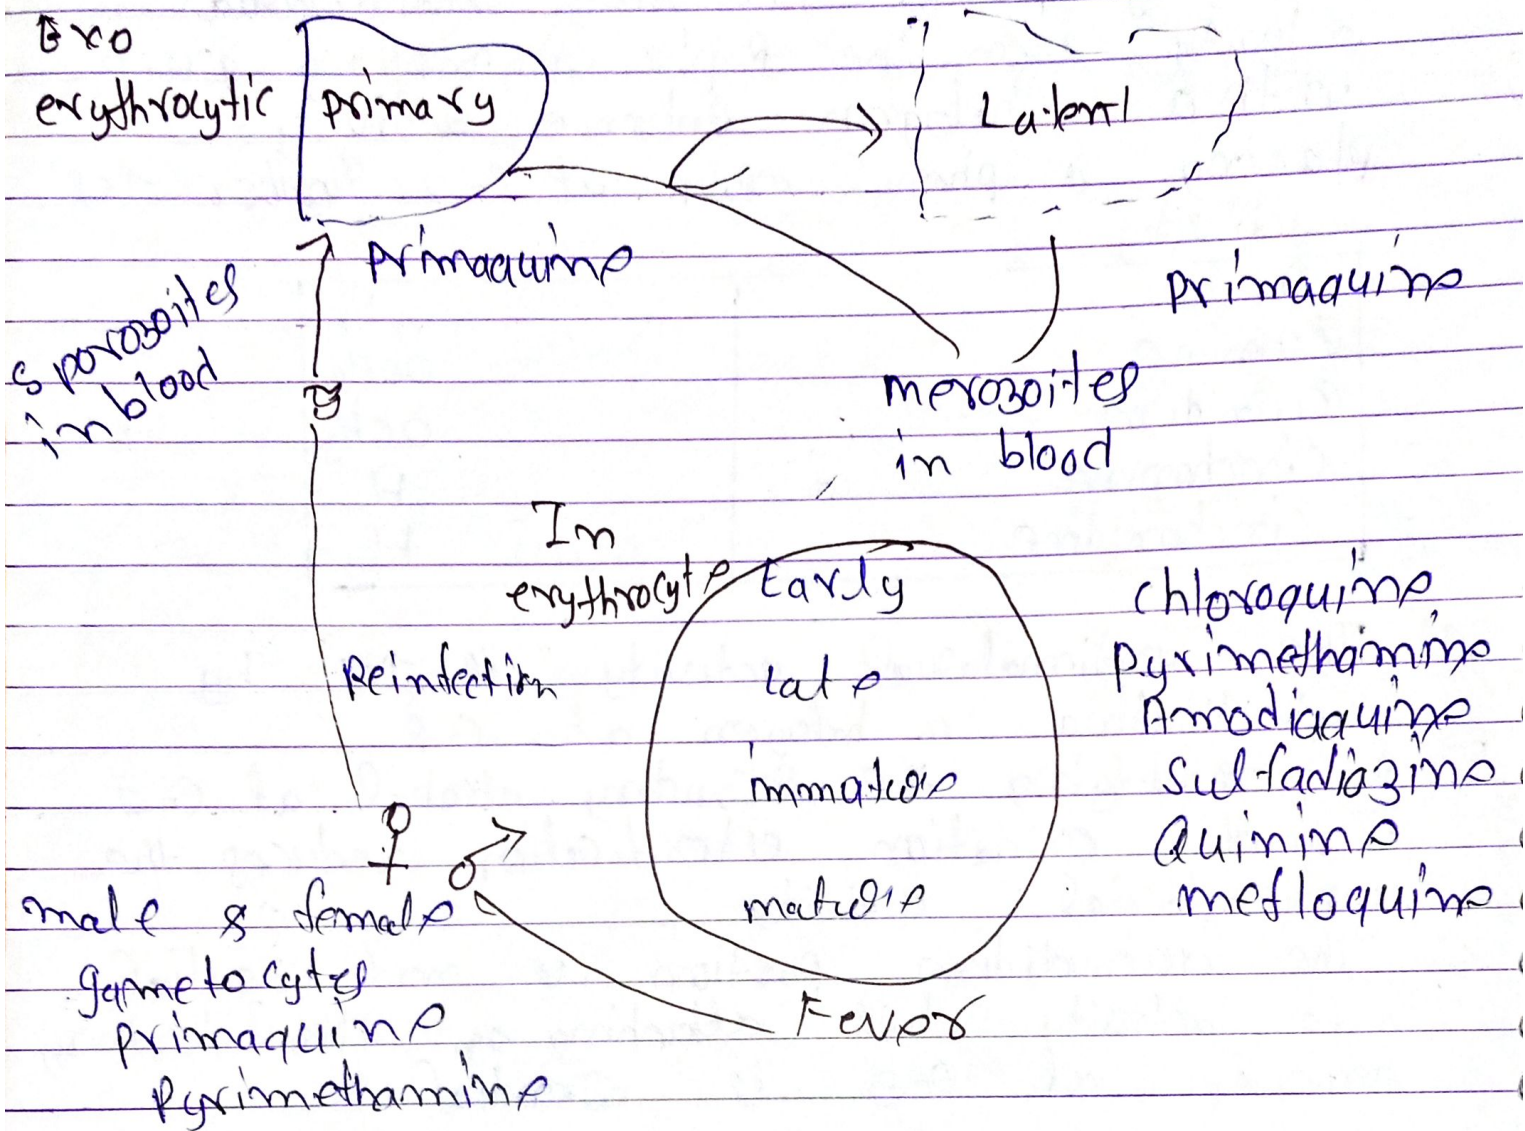 Exo
erythrocytic
primary
Latent
primaquine
primaquine
sporozoites
in blood
merozoites
in blood
In
erythrocyte
Early
late
immature
mature
Reinfection
chloroquine
pyrimethamine
Amodiaquine
Sulfadiazine
Quinine
mefloquine
male & female
gametocytes
primaquine
pyrimethamine
Fever